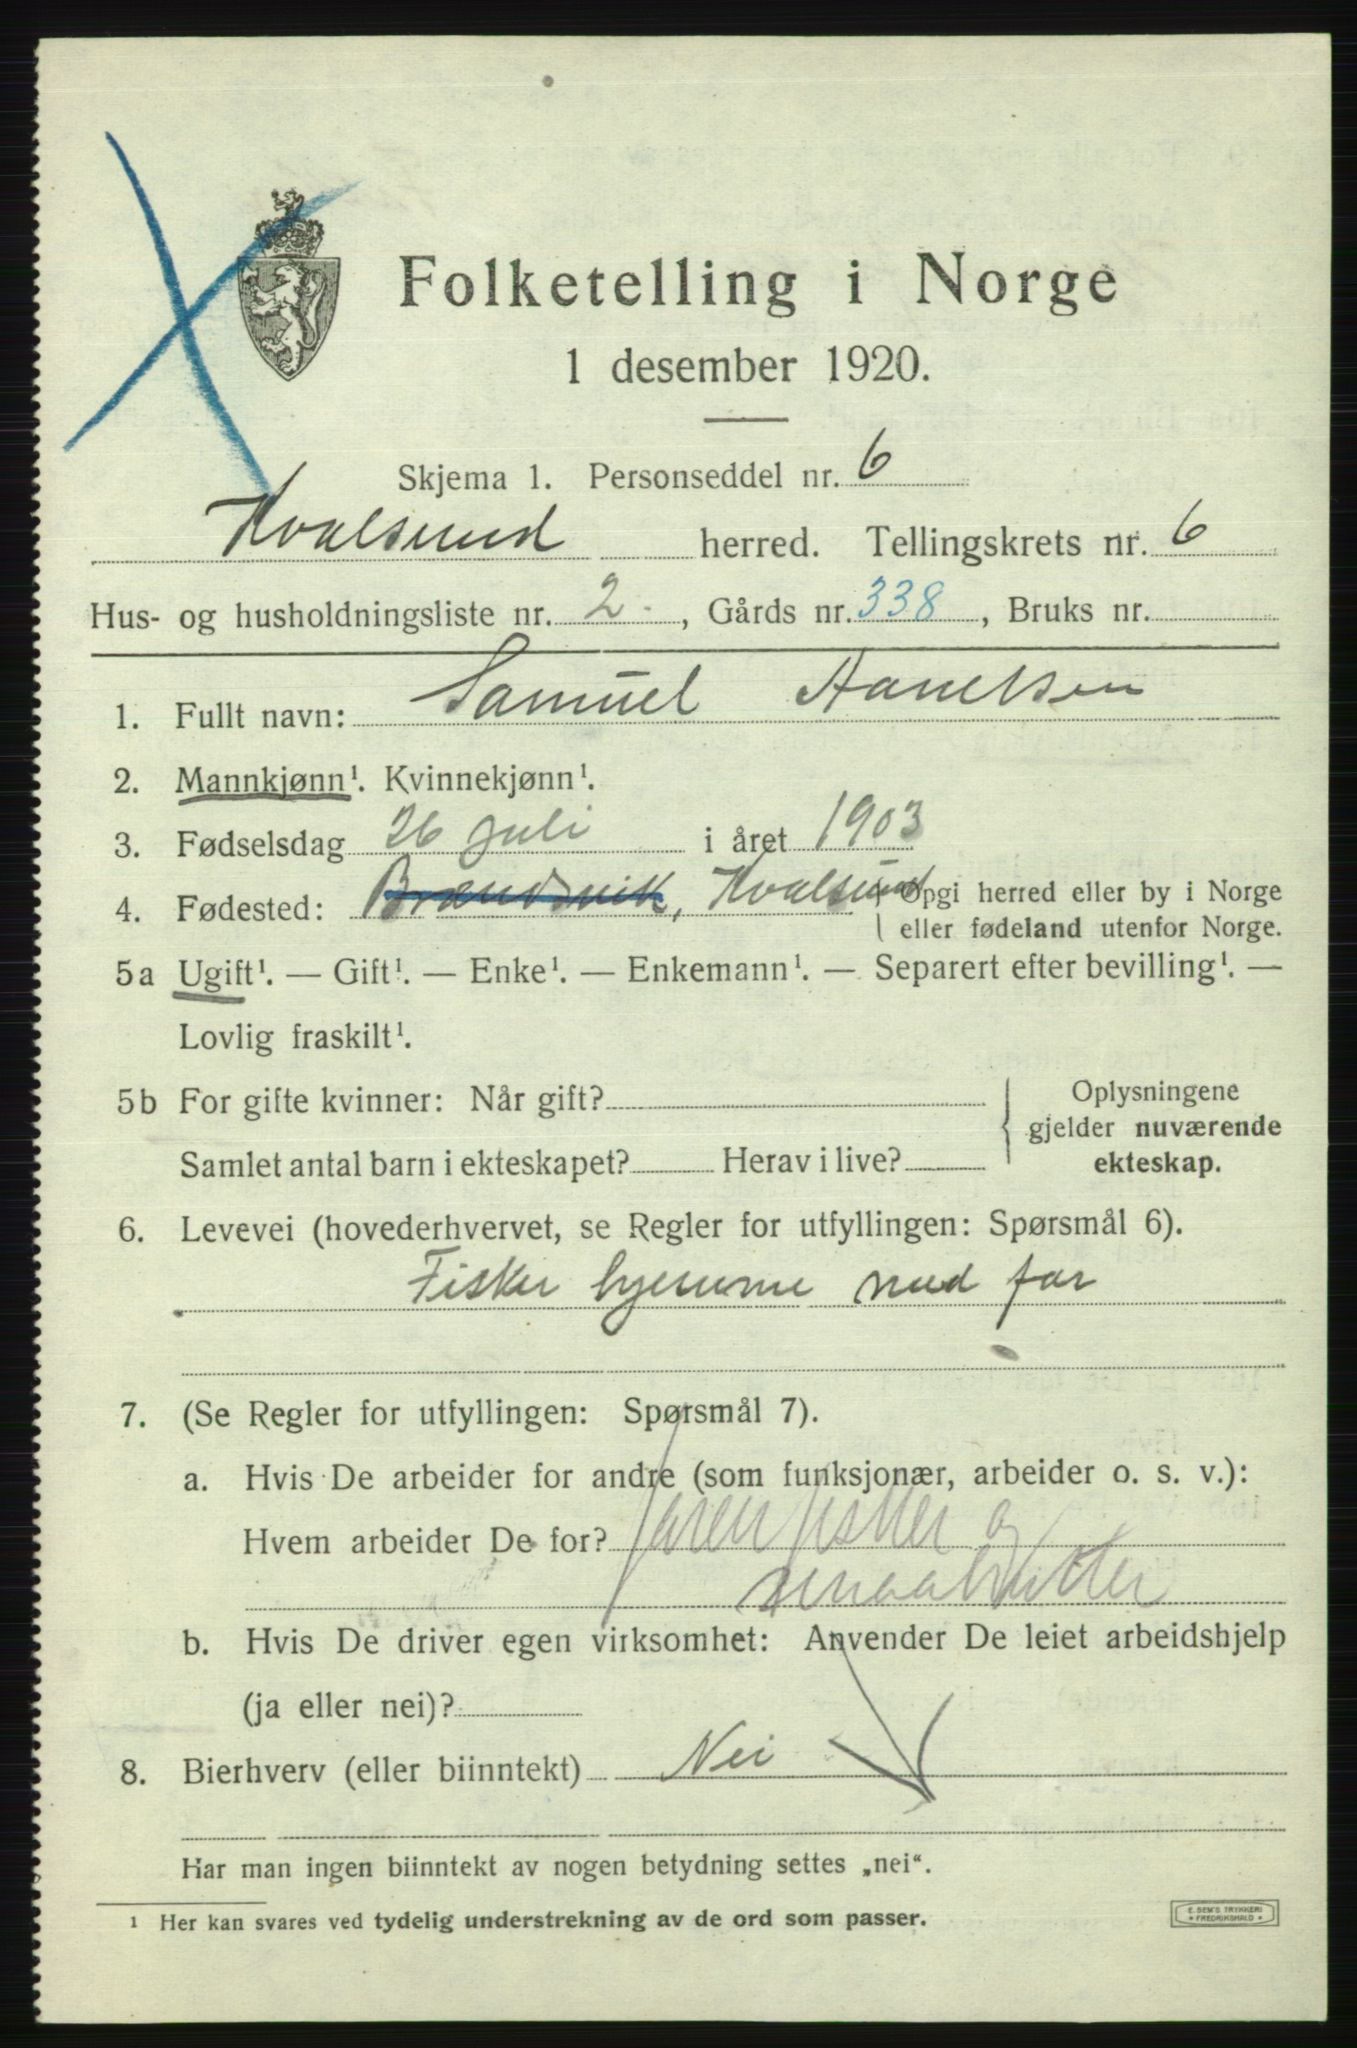 Folketelling i Norge
1 desember 1920.
Skjema 1. Personseddel nr. 6
Kvalsund herred. Tellingskrets nr. 6
Hus- og husholdningsliste nr. 2. , Gårds nr. 338 , Bruks nr.
1. Fullt navn: Samuel
2. Mannkjønn¹. Kvinnekjønn¹.
3. Fødselsdag 26 juli i året 1903
4. Fødested: Brændsvik, Kvalsund { Opgi herred eller by i Norge
eller fødeland utenfor Norge.
5a Ugift¹. — Gift¹. — Enke¹. — Enkemann¹. — Separert efter bevilling¹. —
Lovlig fraskilt¹.
5b For gifte kvinner: Når gift? { Oplysningene
gjelder nuværende
Samlet antal barn i ekteskapet? Herav i live? ekteskap.
6. Levevei (hovederhvervet, se Regler for utfyllingen: Spørsmål 6).
Fisker hjemme med far
7. (Se Regler for utfyllingen: Spørsmål 7).
a. Hvis De arbeider for andre (som funksjonær, arbeider o. s. v.):
Hvem arbeider De for? faren fisker og
smaabruker
b. Hvis De driver egen virksomhet: Anvender De leiet arbeidshjelp
(ja eller nei)?
8. Bierhverv (eller biinntekt) Nei
Har man ingen biinntekt av nogen betydning settes „nei“.
¹ Her kan svares ved tydelig understrekning av de ord som passer.
E. SEM'S TRYKKERI
FREDRIKSHALD